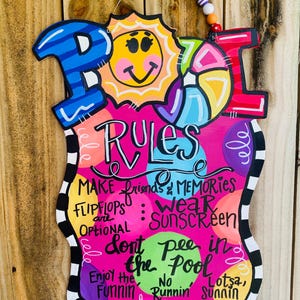 POOL
RULES
MAKE friends & MEMORIES
FLIPFLOPS
are
OPTIONAL
WEAR
SUNSCREEN
dont pee in
the Pool
Enjoy the
Funnin'
No
Runnin'
Lotsa
Sunnin